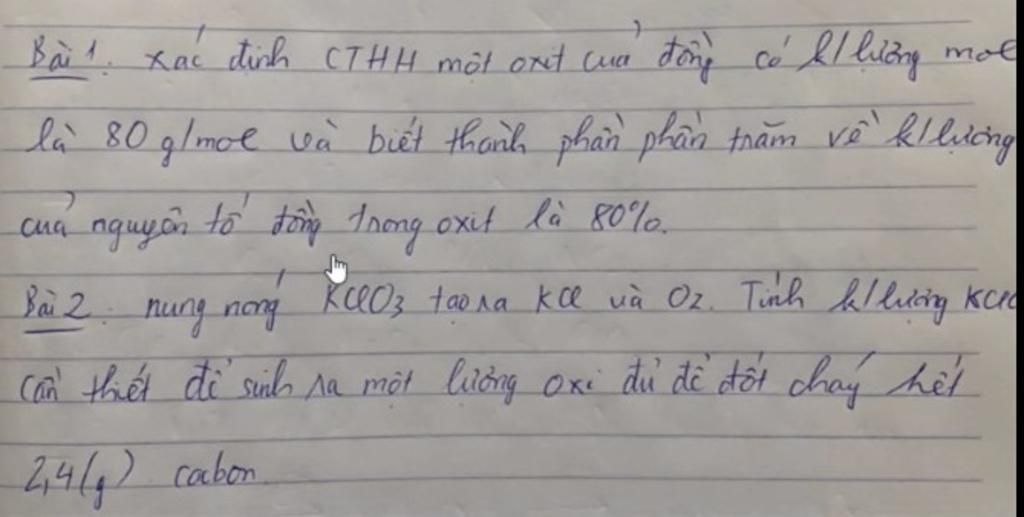 Bài 1: Xác định CTHH một oxit của đồng có k/lượng mol
là 80 g/mol và biết thành phần phần trăm về k/lượng
của nguyên tố đồng trong oxit là 80%.
Bài 2: nung nóng KClO3 tạo ra KCl và O2. Tính k/lượng
cần thiết để sinh ra một lượng oxi đủ để đốt cháy hết
2,4(g) cacbon.